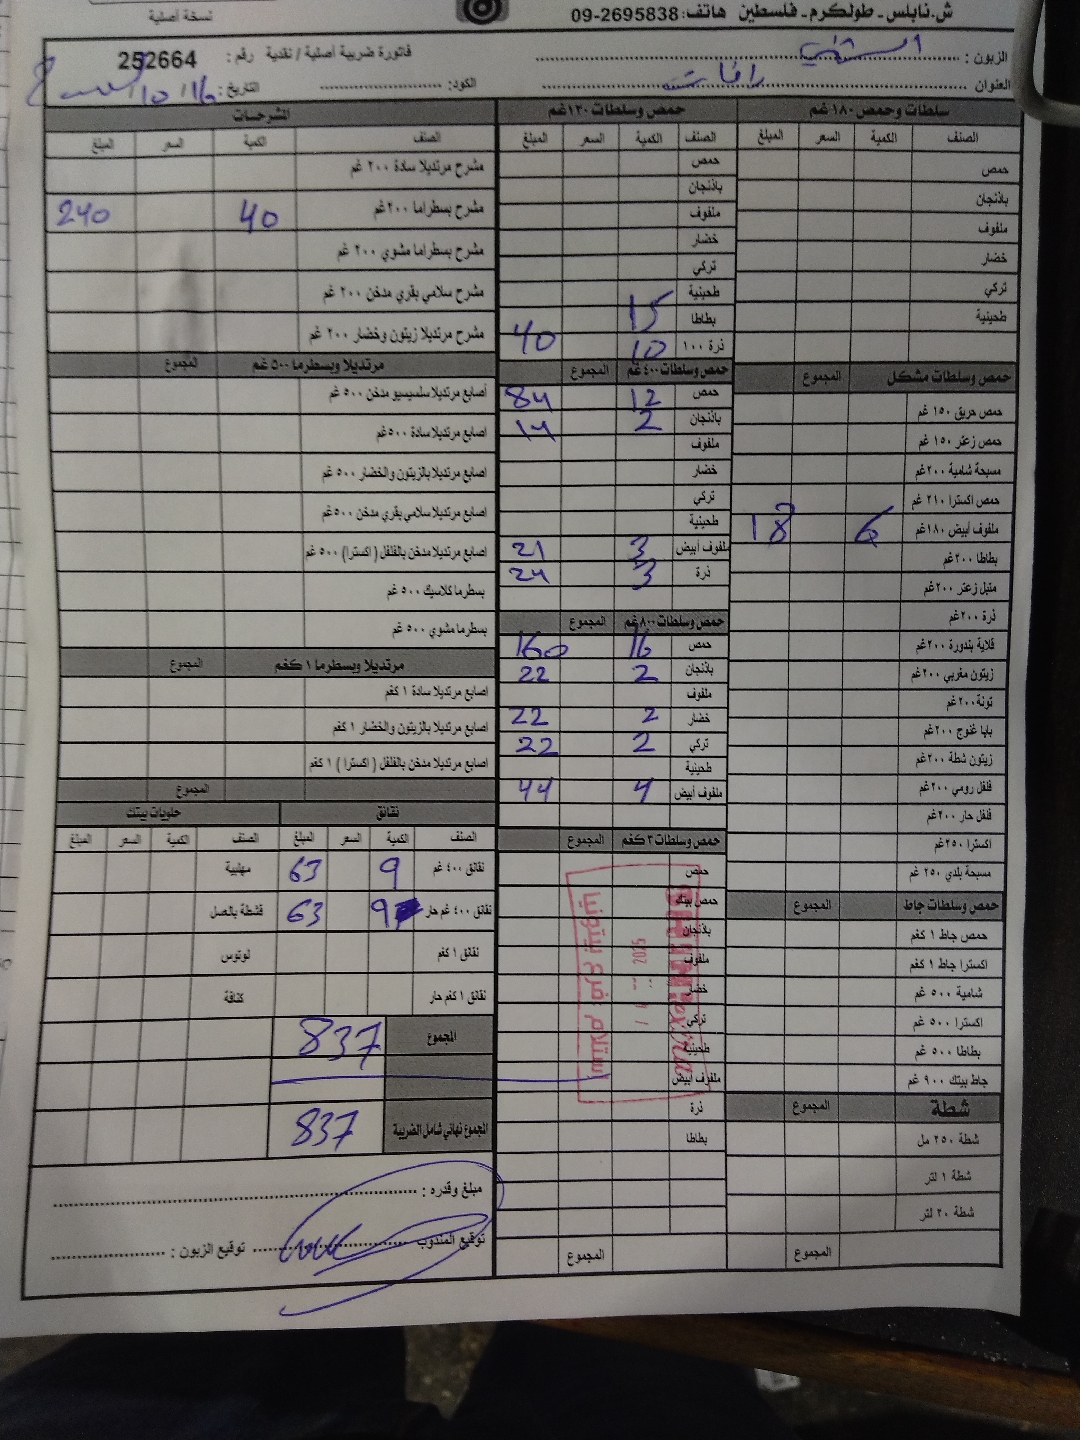 ش.نابلس - طولكرم - فلسطين هاتف: 09-2695838
نسخة أصلية
الزبون :
فاتورة ضريبية أصلية / نقدية رقم : 252664
العنوان رافات الكود: التاريخ: 16 / 10 /
سلطات وحمص ١٨٠غم
الصنف الكمية السعر المبلغ
حمص
باذنجان
ملفوف
خضار
تركي
طحينية
حمص وسلطات مشكل المجموع
حمص حريق ١٥٠ غم
حمص زعتر ١٥٠ غم
مسبحة شامية ٢٠٠غم
حمص اكسترا ٢١٠ غم
ملفوف أبيض ١٨٠غم 6 18
بطاطا ٢٠٠غم
متبل زعتر ٢٠٠غم
ذرة ٢٠٠غم
قلاية بندورة ٢٠٠غم
زيتون مغربي ٢٠٠غم
تونة ٢٠٠غم
بابا غنوج ٢٠٠غم
زيتون شطة ٢٠٠غم
فلفل رومي ٢٠٠غم
فلفل حار ٢٠٠غم
اكسترا ٢٥٠غم
مسبحة بلدي ٢٥٠ غم
حمص وسلطات جاط المجموع
حمص جاط ١ كغم
اكسترا جاط ١ كغم
شامية ٥٠٠ غم
اكسترا ٥٠٠ غم
بطاطا ٥٠٠ غم
جاط بيتك ٩٠٠ غم
شطة المجموع
شطة ٢٥٠ مل
شطة ١ لتر
شطة ٢٠ لتر
المجموع
حمص وسلطات ١٢٠غم
الصنف الكمية السعر المبلغ
حمص
باذنجان
ملفوف
خضار
تركي
طحينية
بطاطا 15
ذرة ١٠٠ 10 40
حمص وسلطات ٤٠٠غم المجموع
حمص 12 84
باذنجان 2 14
ملفوف
خضار
تركي
طحينية
ملفوف أبيض 3 21
ذرة 3 24
حمص وسلطات ٨٠٠غم المجموع
حمص 16 160
باذنجان 2 22
ملفوف
خضار 2 22
تركي 2 22
طحينية
ملفوف أبيض 4 44
حمص وسلطات ٣كغم المجموع
حمص
حمص بيتك
باذنجان
ملفوف
خضار
تركي
طحينية
ملفوف أبيض
ذرة
بطاطا
المجموع
2025
استلام فرع بيتونيا
المشرحات
الصنف الكمية السعر المبلغ
مشرح مرتديلا سادة ٢٠٠ غم
مشرح بسطراما ٢٠٠غم 40 240
مشرح بسطراما مشوي ٢٠٠ غم
مشرح سلامي بقري مدخن ٢٠٠ غم
مشرح مرتديلا زيتون وخضار ٢٠٠ غم
مرتديلا وبسطرما ٥٠٠ غم المجموع
أصابع مرتديلا سلمسيو مدخن ٥٠٠ غم
اصابع مرتديلا سادة ٥٠٠غم
اصابع مرتديلا بالزيتون والخضار ٥٠٠ غم
اصابع مرتديلا سلامي بقري مدخن ٥٠٠غم
اصابع مرتديلا مدخن بالفلفل ( اكسترا) ٥٠٠ غم
بسطرما كلاسيك ٥٠٠ غم
بسطرما مشوي ٥٠٠ غم
مرتديلا وبسطرما ١ كغم المجموع
اصابع مرتديلا سادة ١ كغم
اصابع مرتديلا بالزيتون والخضار ١ كغم
اصابع مرتديلا مدخن بالفلفل ( اكسترا ) ١ كغم
المجموع
نقانق حلويات بيتك
الصنف الكمية السعر المبلغ الصنف الكمية السعر المبلغ
نقانق ٤٠٠ غم 9 63 مهلبية
نقانق ٤٠٠ غم حار 9 63 قشطة بالعسل
نقانق ١ كغم لوتوس
نقانق ١ كغم حار كنافة
المجموع 837
المجموع نهائي شامل الضريبة 837
مبلغ وقدره :
توقيع المندوب توقيع الزبون :